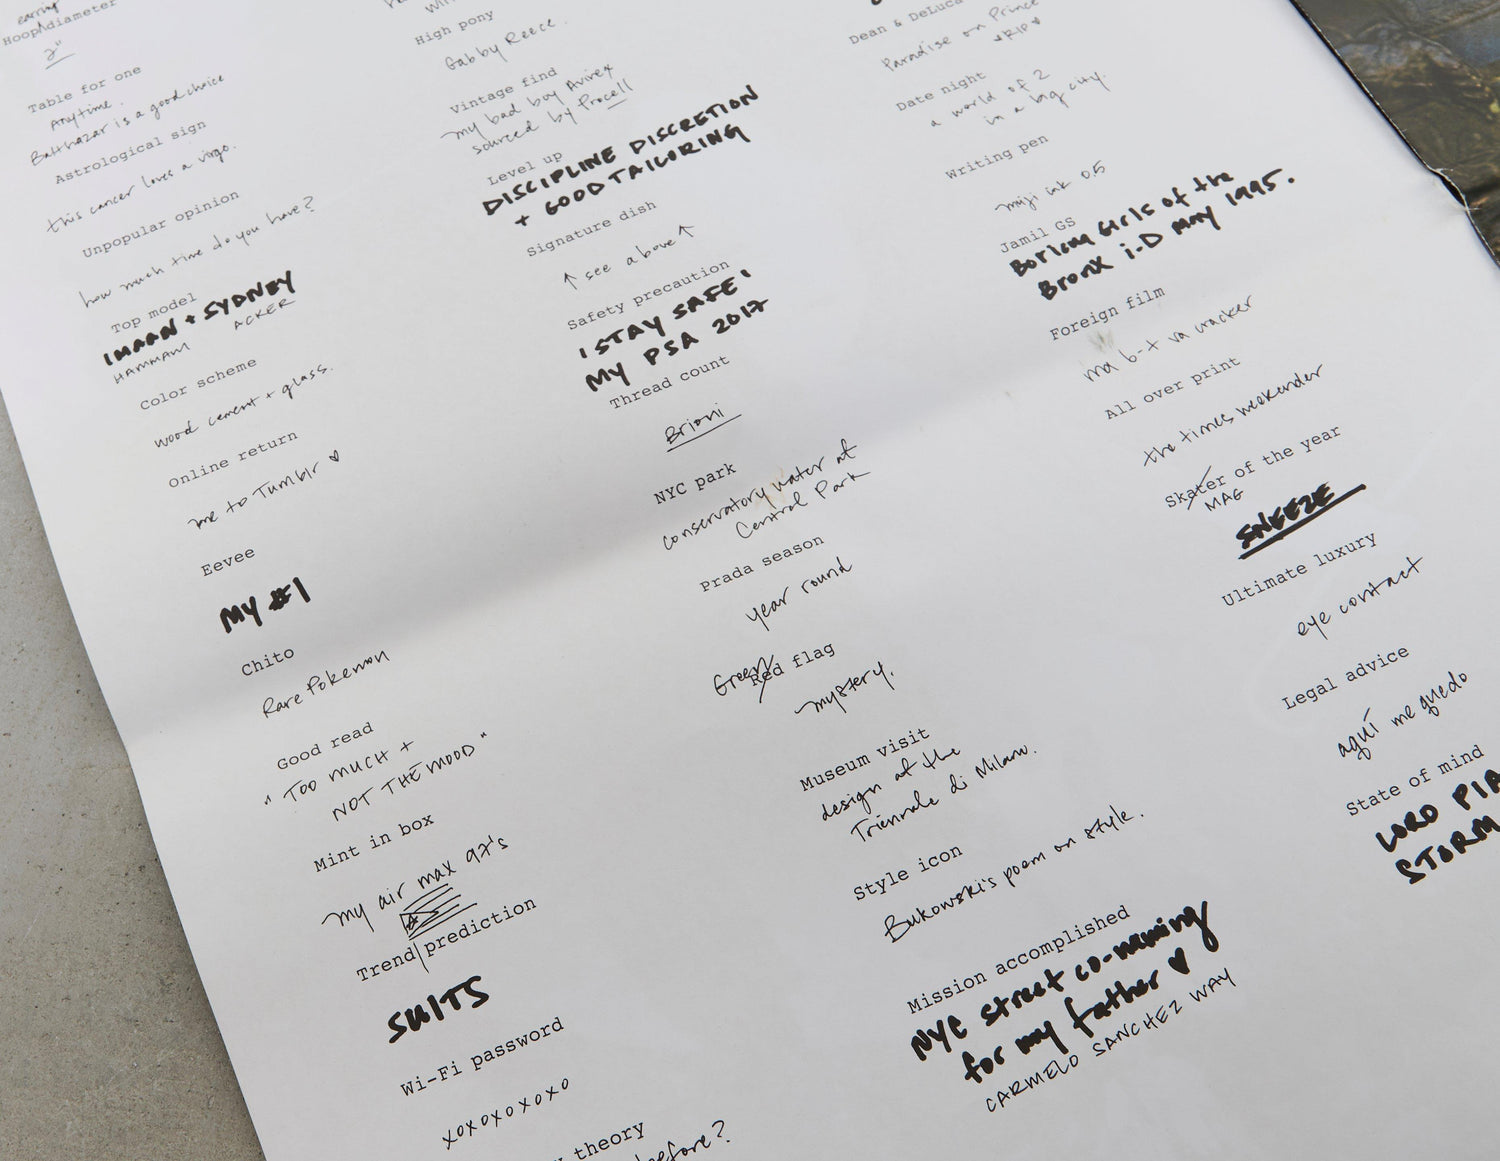 earring
Hoop diameter
2"
Table for one
Anytime.
Balthazar is a good choice
Astrological sign
this cancer loves a virgo.
Unpopular opinion
how much time do you have?
Top model
IMAAN + SYDNEY
HAMMAM ACKER
Color scheme
wood cement + glass.
Online return
me to Tumblr ♥
Eevee
MY #1
Chito
Rare Pokemon
Good read
"TOO MUCH +
NOT THE MOOD"
Mint in box
my air max 97's
Trend prediction
SUITS
Wi-Fi password
xoxoxoxoxo
theory
before?
High pony
Gabby Reece.
Vintage find
my bad boy Avirex
sourced by Procell
Level up
DISCIPLINE DISCRETION
+ GOOD TAILORING
Signature dish
↑ see above ↑
Safety precaution
'STAY SAFE'
MY PSA 2017
Thread count
Brioni
NYC park
conservatory water at
Central Park
Prada season
year round
Green Red flag
mystery.
Museum visit
design at the
Triennale di Milano.
Style icon
Bukowski's poem on style.
Mission accomplished
NYC street co-naming
for my father ♥
CARMELO SANCHEZ WAY
Dean & DeLuca
Paradise on Prince
♥RIP♥
Date night
a world of 2
in a big city.
Writing pen
muji ink 0.5
Jamil GS
Boricua Girls of the
Bronx i-D May 1995.
Foreign film
All over print
the times weekender
Skater of the year
MAG
SNEEZE
Ultimate luxury
eye contact
Legal advice
aquí me quedo
State of mind
LORO PIA
STORM